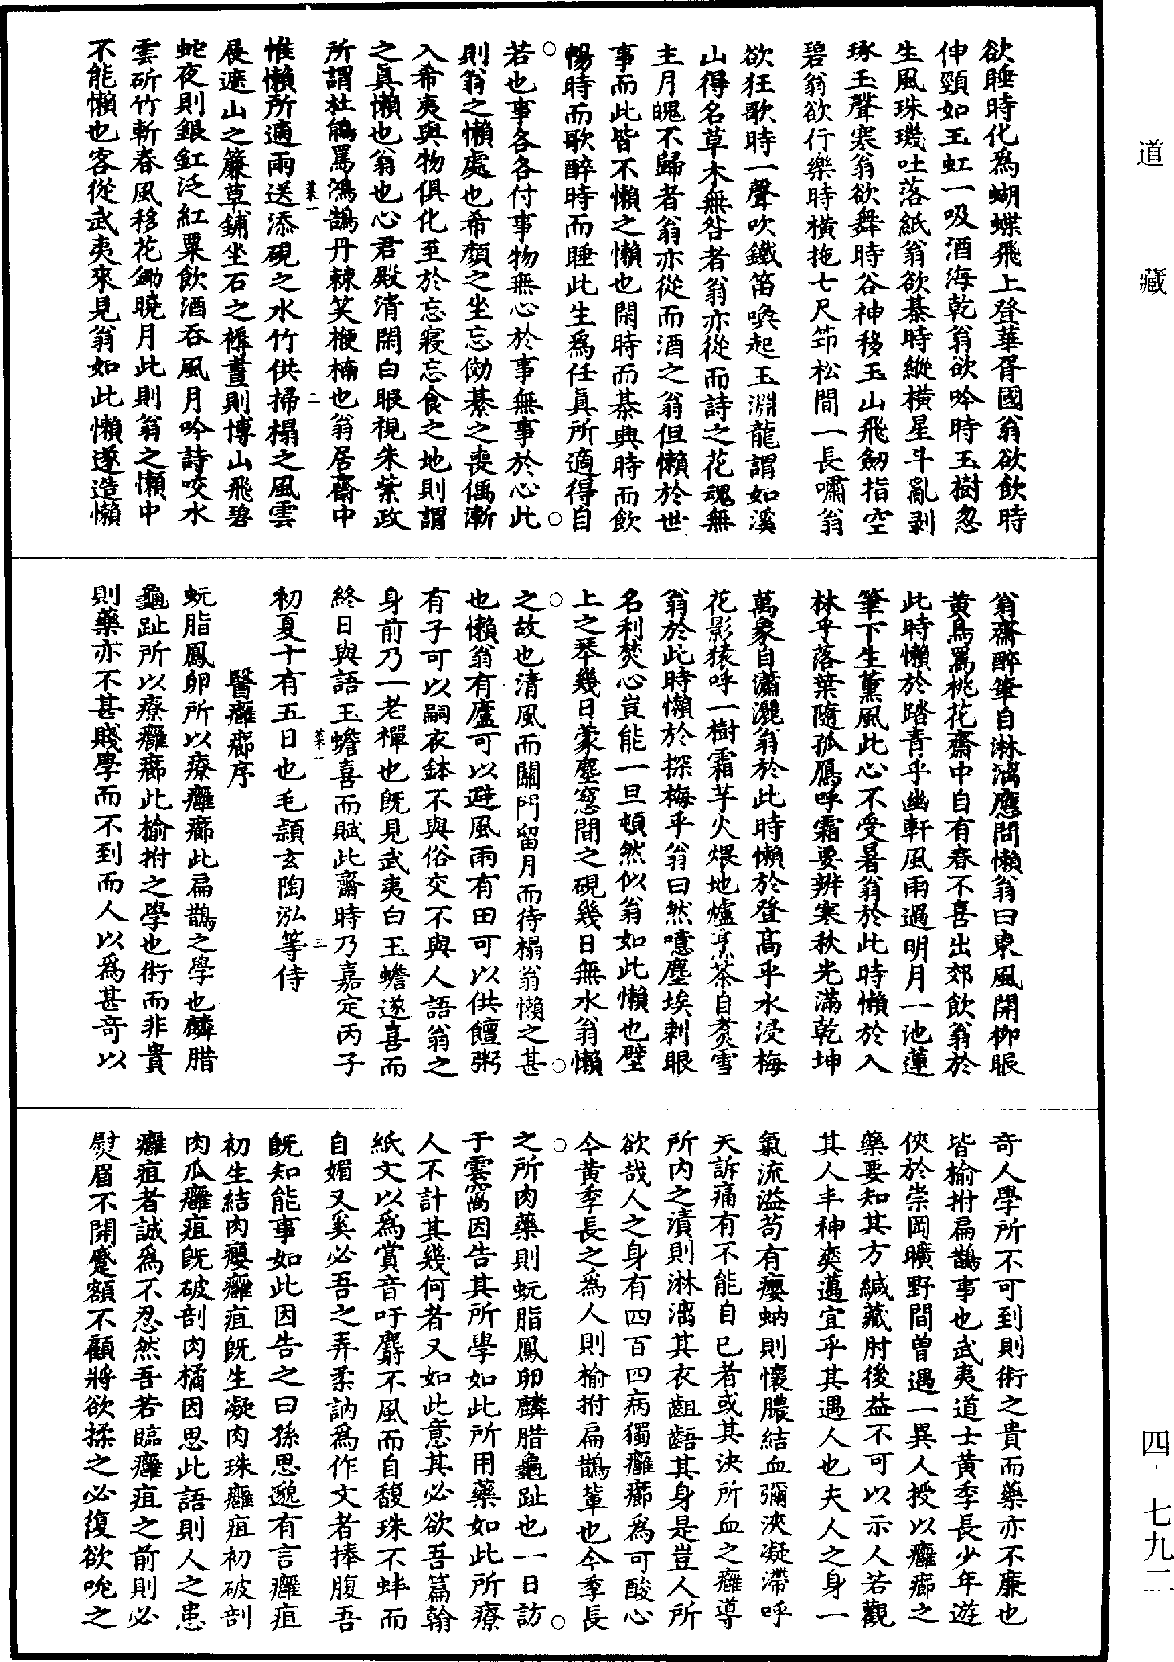 道藏
四·七九二
欲睡時化為蝴蝶飛上登華胥國翁欲飲時
伸頸如玉虹一吸酒海乾翁欲吟時玉樹忽
生風珠璣吐落紙翁欲棊時縱橫星斗亂剥
琢玉聲寒翁欲舞時谷神移玉山飛劒指空
碧翁欲行樂時橫拖七尺筇松間一長嘯翁
欲狂歌時一聲吹鐵笛喚起玉淵龍謂如溪
山得名草木無咎者翁亦從而詩之花魂無
主月魄不歸者翁亦從而酒之翁但懶於世
事而此皆不懶之懶也閑時而棊興時而飲
暢時而歌醉時而睡此生為任真所適得自
若也事各各付事物無心於事無事於心此
則翁之懶處也希顏之坐忘俲綦之喪偶漸
入希夷與物俱化至於忘寢忘食之地則謂
之真懶也翁也心君殿清閑白眼視朱紫政
所謂杜鵑罵鴻鵠丹棘笑楩楠也翁居齋中
惟懶所適雨送添硯之水竹供掃榻之風雲
展遮山之簾草鋪坐石之褥晝則博山飛碧
蛇夜則銀釭泛紅粟飲酒吞風月吟詩咬水
雲斫竹斬春風移花鋤曉月此則翁之懶中
不能懶也客從武夷來見翁如此懶遂造懶
菜一
二
翁齋醉筆自淋漓應問懶翁曰東風開柳眼
黃鳥罵桃花齋中自有春不喜出郊飲翁於
此時懶於踏青乎幽軒風雨過明月一池蓮
筆下生薰風此心不受暑翁於此時懶於入
林乎落葉隨孤鴈呼霜要辨寒秋光滿乾坤
萬象自瀟灑翁於此時懶於登高乎水浸梅
花影猿呼一樹霜芋火煨地爐烹茶自煑雪
翁於此時懶於探梅乎翁曰然噫塵埃刺眼
名利焚心豈能一旦頓然似翁如此懶也壁
上之琴幾日蒙塵窓間之硯幾日無水翁懶
之故也清風而關門留月而待榻翁懶之甚
也懶翁有廬可以避風雨有田可以供饘粥
有子可以嗣衣鉢不與俗交不與人語翁之
身前乃一老禪也旣見武夷白玉蟾遂喜而
終日與語玉蟾喜而賦此齋時乃嘉定丙子
初夏十有五日也毛頴玄陶泓等侍
菜一
三
醫癰癤序
蚖脂鳳卵所以療癰癤此扁鵲之學也麟腊
龜趾所以療癰癤此榆拊之學也術而非貴
則藥亦不甚賤學而不到而人以為甚奇以
奇人學所不可到則術之貴而藥亦不廉也
皆榆拊扁鵲事也武夷道士黃季長少年遊
俠於崇岡曠野間曽遇一異人授以癰癤之
藥要知其方緘藏肘後益不可以示人若觀
其人丰神爽邁宜乎其遇人也夫人之身一
氣流溢苟有癭蚋則懷膿結血瀰浹凝滯呼
天訴痛有不能自已者或其決所血之癰導
所內之漬則淋漓其衣齟齬其身是豈人所
欲哉人之身有四百四病獨癰癤為可酸心
今黃季長之為人則榆拊扁鵲輩也今季長
之所肉藥則蚖脂鳳卵麟腊龜趾也一日訪
于雲窩因告其所學如此所用藥如此所療
人不計其幾何者又如此意其必欲吾篇翰
紙文以為賞音吁麝不風而自馥珠不蚌而
自媚又奚必吾之弄柔訥為作文者捧腹吾
旣知能事如此因告之曰孫思邈有言癰疽
初生結肉癭癰疽旣生凝肉珠癰疽初破剖
肉瓜癰疽旣破剖肉橘因思此語則人之患
癰疽者誠為不忍然吾若臨癰疽之前則必
熨眉不開蹙額不顧將欲揉之必復欲吮之